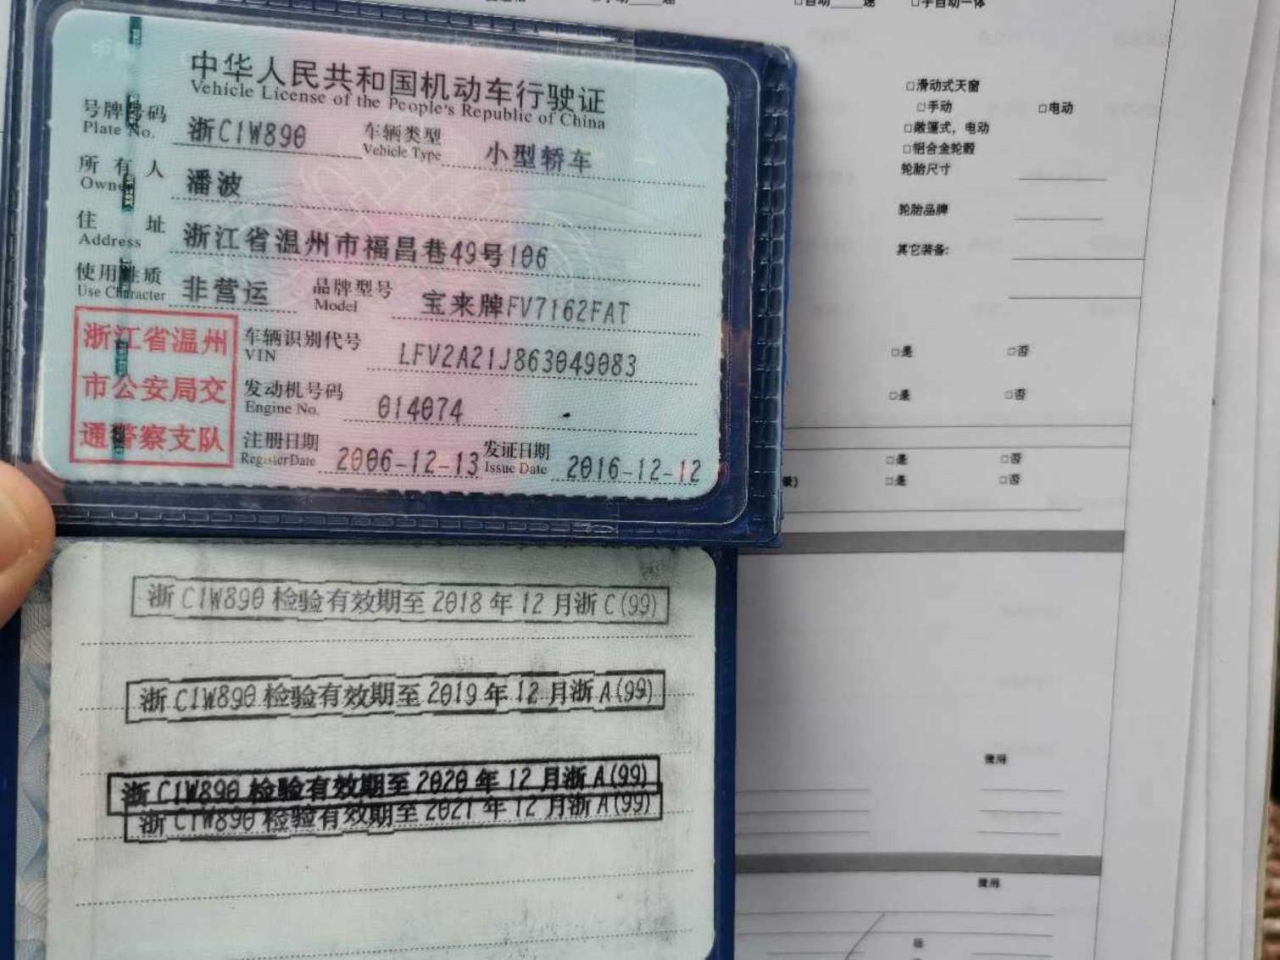 中华人民共和国机动车行驶证
Vehicle License of the People's Republic of China
号牌号码 浙C1W890 车辆类型 小型轿车
Plate No. Vehicle Type
所有人 潘波
Owner
住址 浙江省温州市福昌巷49号106
Address
使用性质 非营运 品牌型号 宝来牌FV7162FAT
Use Character Model
浙江省温州
市公安局交
通警察支队
车辆识别代号 LFV2A21J863049083
VIN
发动机号码 014074
Engine No.
注册日期 2006-12-13 发证日期 2016-12-12
Register Date Issue Date
浙C1W890检验有效期至2018年12月浙C(99)
浙C1W890检验有效期至2019年12月浙A(99)
浙C1W890检验有效期至2020年12月浙A(99)
浙C1W890检验有效期至2021年12月浙A(99)
□自动 速 □手自动一体
□滑动式天窗
□手动 □电动
□敞篷式，电动
□铝合金轮毂
轮胎尺寸
轮胎品牌
其它装备:
□是 □否
□是 □否
□是 □否
□是 □否
费用
费用